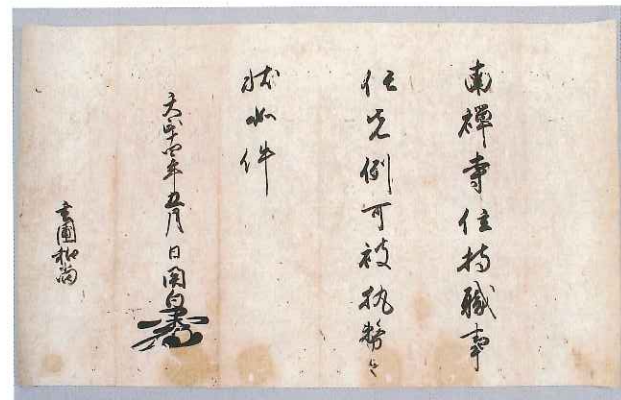 南禅寺住持職事
任先例可被執務之
状如件
天正十四年五月日関白
玄圃和尚